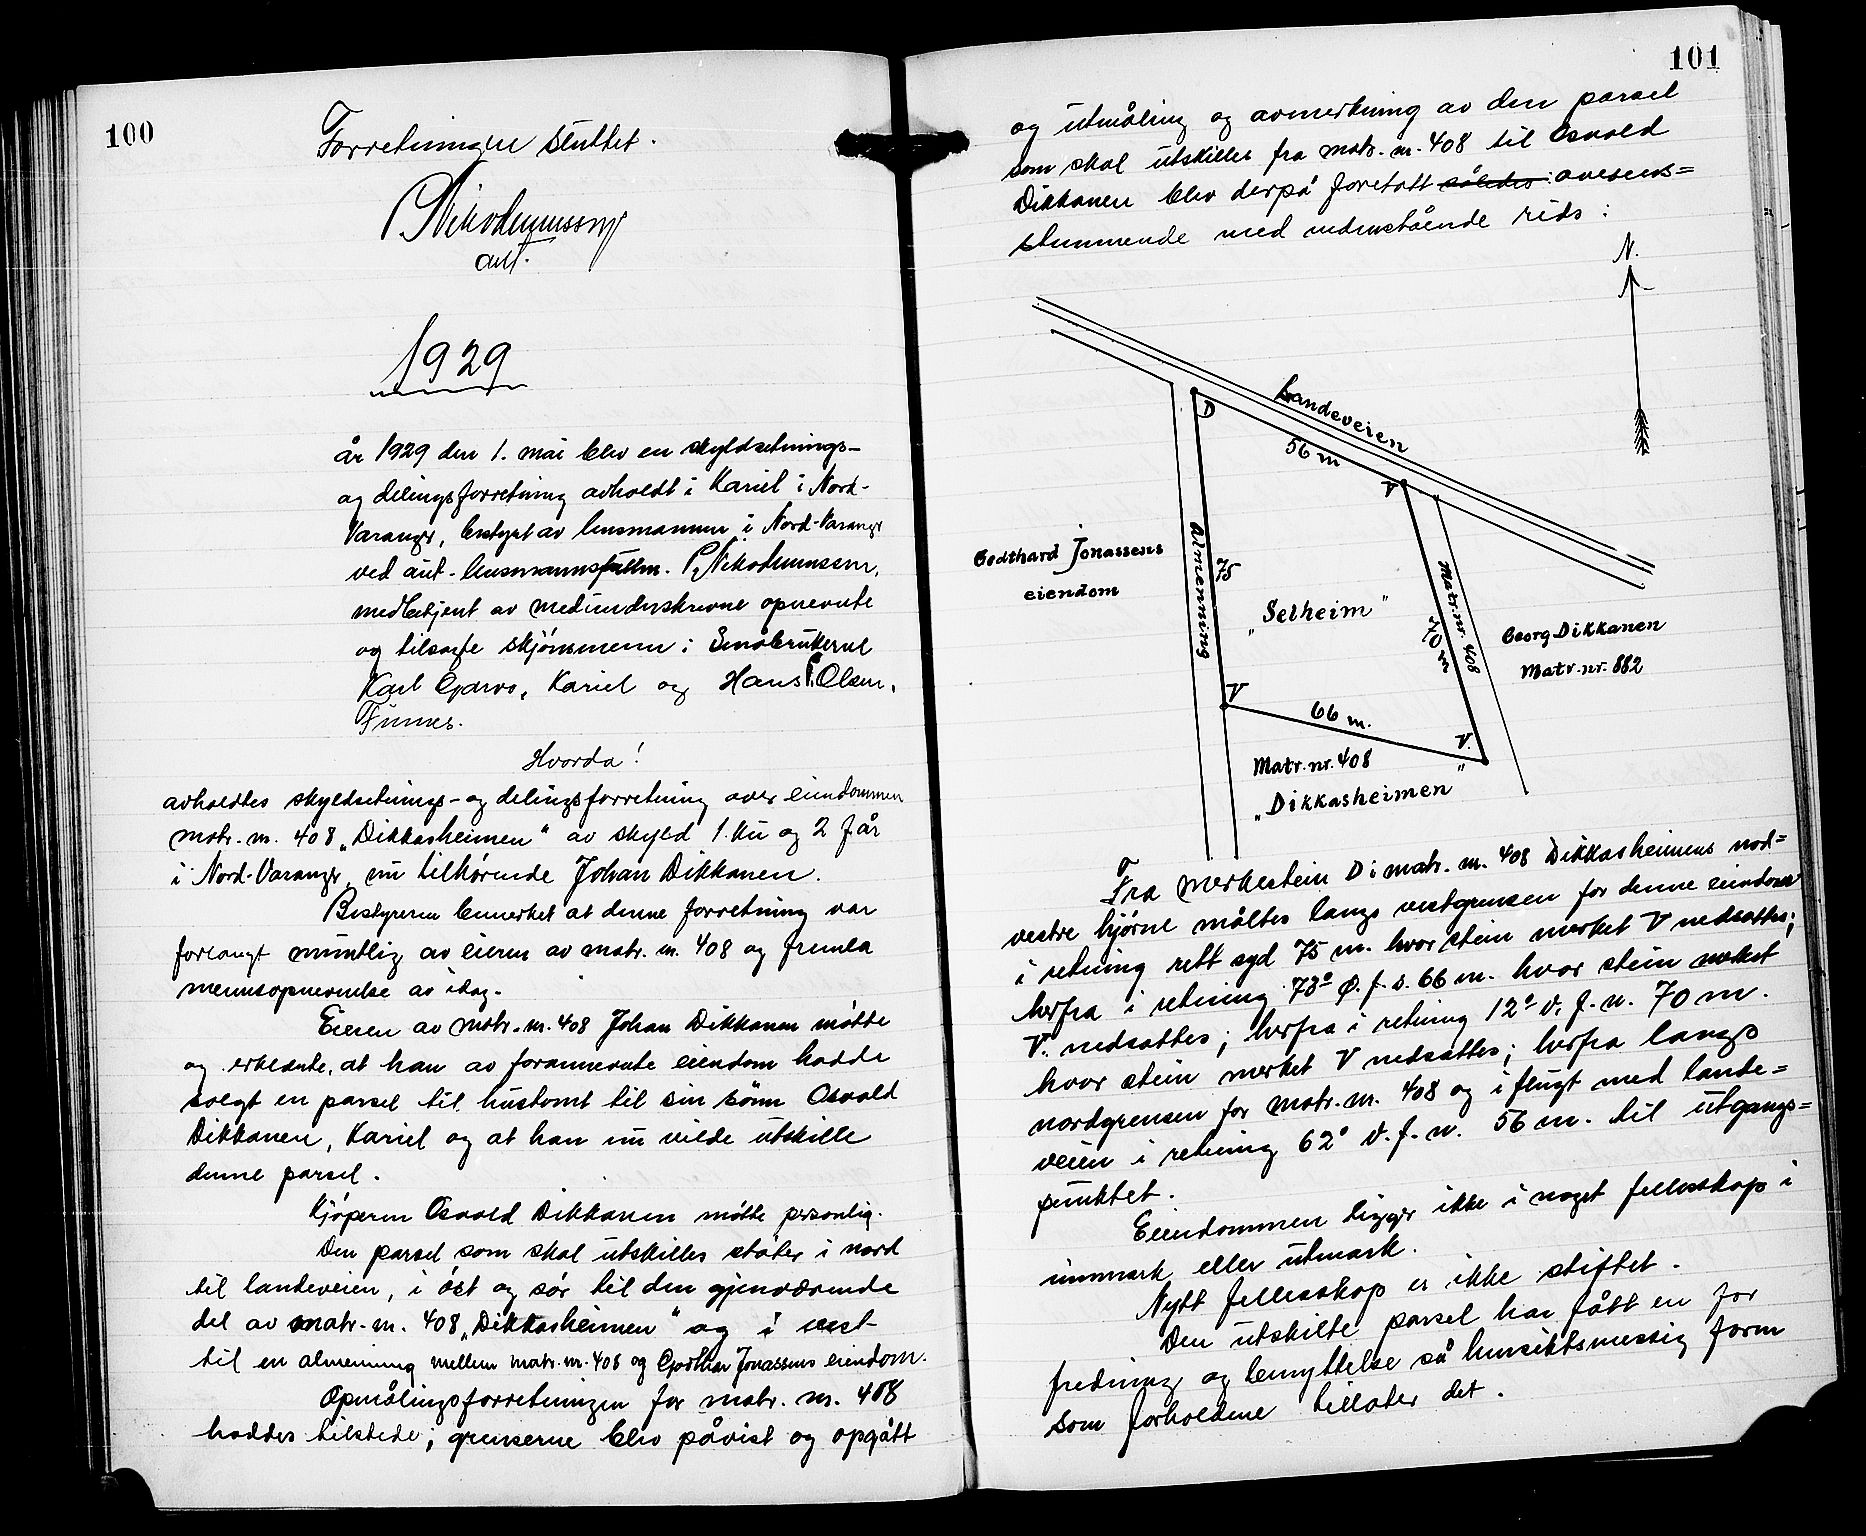 100
Forretningen sluttet.
P. Nikodemussen
aut.
1929
år 1929 den 1. mai blev en skyldsetnings-
og delingsforretning avholdt i Kariel i Nord-
Varanger, bestyrt av lensmannen i Nord-Varanger
ved aut. lensmannsfullm. P. Nikodemussen,
medbetjent av medunderskrevne opnevnte
og tilsagte skjønsmenn: Småbrukerne
Karl Gjarvo, Kariel og Hans P. Olsen,
Finnes.
Hvorda!
avholdtes skyldsetnings- og delingsforretning over eiendommen
matr. nr. 408 „Dikkasheimen" av skyld 1. ku og 2 får
i Nord-Varanger, nu tilhørende Johan Dikkanen.
Bestyreren bemerket at denne forretning var
forlangt muntlig av eieren av matr. nr. 408 og fremla
mennsopnevnelse av idag.
Eieren av matr. nr. 408 Johan Dikkanen møtte
og erklærte, at han av forannevnte eiendom hadde
solgt en parsel til hustomt til sin sønn Osvald
Dikkanen, Kariel og at han nu vilde utskille
denne parsel.
Kjøperen Osvald Dikkanen møtte personlig.
Den parsel som skal utskilles støter i nord
til landeveien, i øst og sør til den gjenværende
del av matr. nr. 408 „Dikkasheimen" og i vest
til en almenning mellem matr. nr. 408 og Godthar Jonassens eiendom.
Opmålingsforretningen for matr. nr. 408
haddes tilstede; grenserne blev påvist og opgått
101
og utmåling og avmerkning av den parsel
som skal utskilles fra matr. nr. 408 til Osvald
Dikkanen blev derpå foretatt således: overens=
stemmende med nedenstående rids:
N.
Landeveien
D
56 m
V
Godthard Jonassens
eiendom
Almenning
75
„Selheim"
Matr. nr 408
70 m
Georg Dikkanen
Matr. nr. 882
V
66 m.
V.
Matr. nr. 408
„Dikkasheimen"
Fra merkestein D i matr. nr. 408 Dikkasheimens nord=
vestre hjørne måltes langs vestgrensen for denne eiendom
i retning rett syd 75 m. hvor stein merket V nedsattes;
herfra i retning 73° Ø. f. s. 66 m. hvor stein merket
V. nedsattes; herfra i retning 12° v. f. n. 70 m.
hvor stein merket V nedsattes; herfra langs
nordgrensen for matr. nr. 408 og i flugt med lande=
veien i retning 62° v. f. n. 56 m. til utgangs=
punktet.
Eiendommen ligger ikke i noget fellesskap i
innmark eller utmark.
Nytt fellesskap er ikke stiftet.
Den utskilte parsel har fått en for
fredning og benyttelse så hensiktsmessig form
som forholdene tillater det.